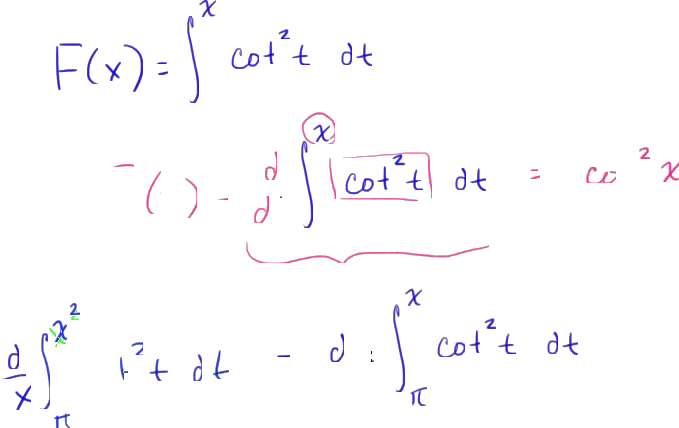 F(x) = ∫^x cot² t dt
‾( ) - d/d ∫^x cot² t dt = co ² x
d/x ∫_π^x² t² t dt - d ∫_π^x cot² t dt